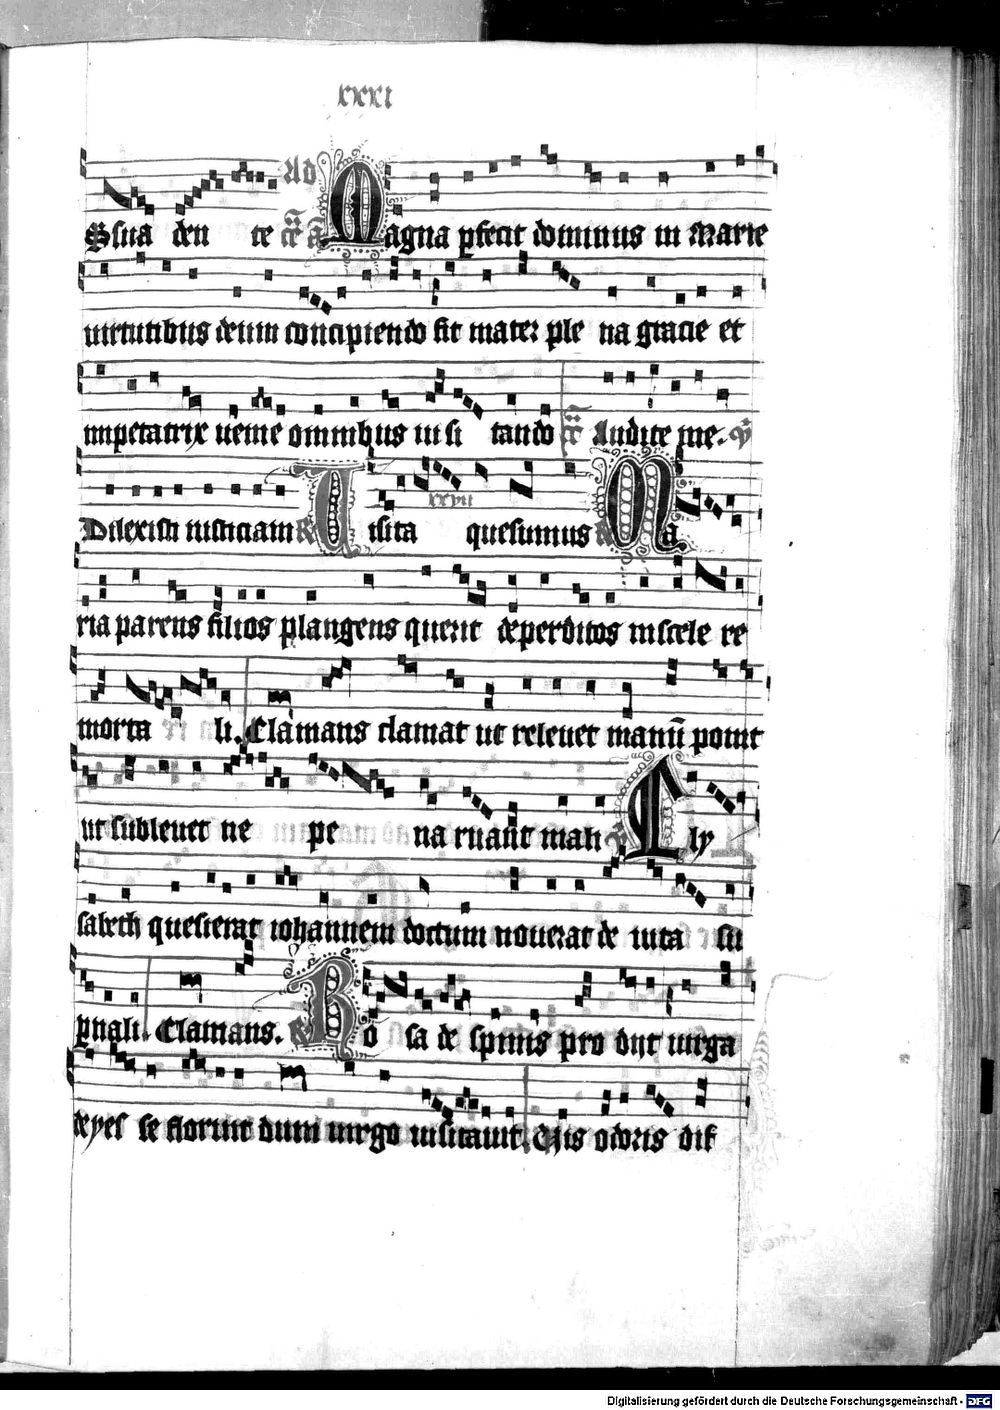 xxxi
Ad
ssua den te Magna pfecit dominus in Marie
uirtutibus deum concipiendo fit mater ple na gracie et
impetatrix ueme omnibus uisi tando Audite me.
Dilexisti iusticiam Uisita quesumus Ma
xxvii
ria parens filios plangens querit deperditos in scele re
morta li. Clamans clamat ut releuet manū ponit
ut subleuet ne pe na ruant mali Ely
sabeth quesierat iohannem doctum nouerat de iuta su
pnali. Clamans. Ro sa de spinis pro dijt uirga
deyes se floruit dum uirgo uisitauit. Cuis odoris dif
Digitalisierung gefördert durch die Deutsche Forschungsgemeinschaft - DFG